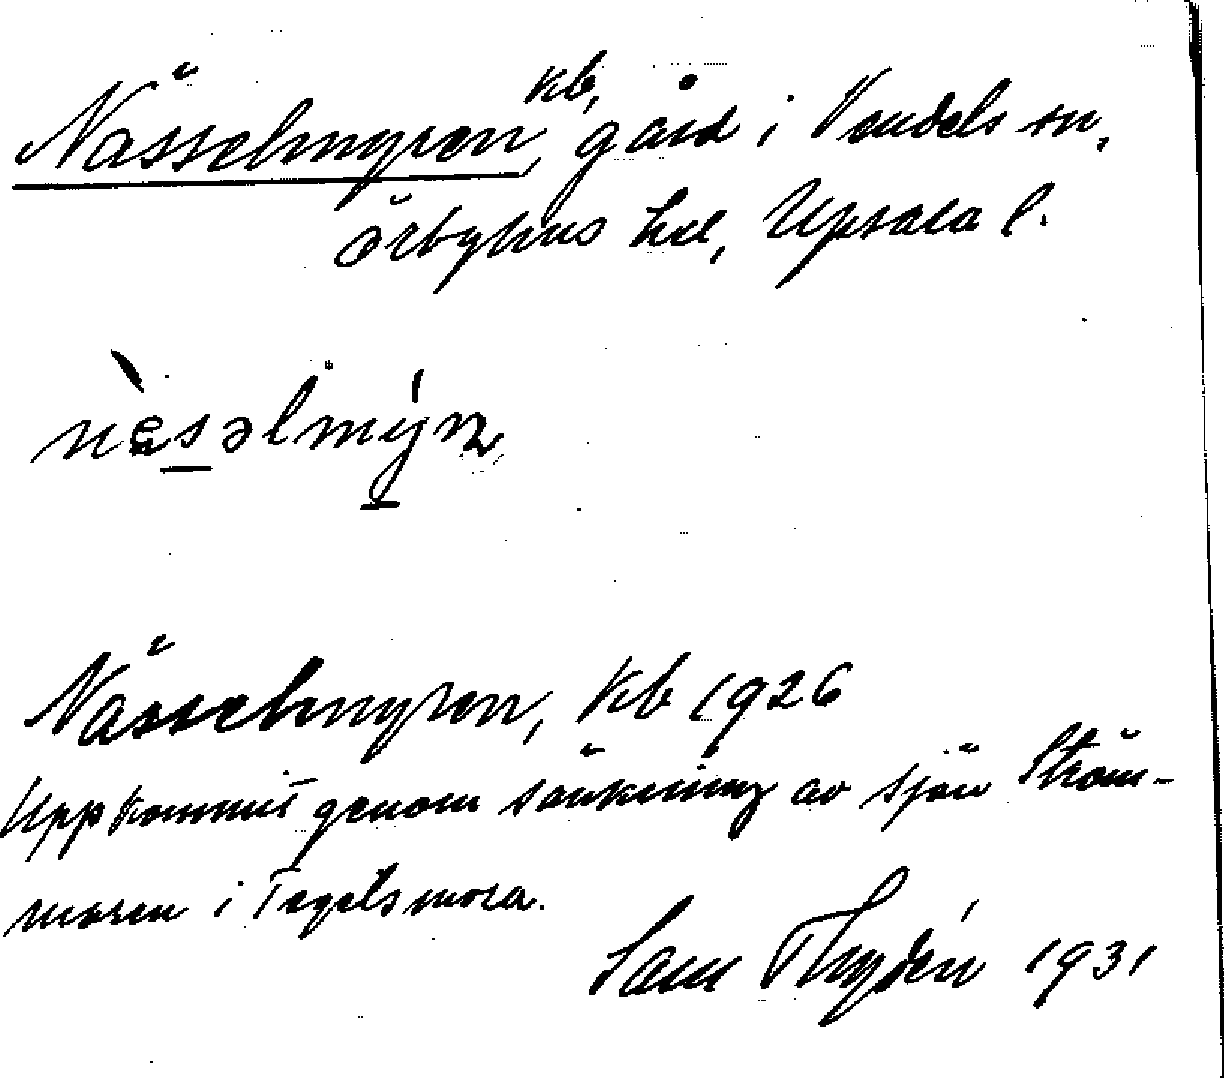 Nässelmyren, kb, gård i Vendels sn,
Örbyhus hd, Upsala l.
nèsəlmýrn
Nässelmyren, kb 1926
Uppkommit genom sänkning av sjön Ström-
maren i Tegelsmora.
Sam Thydén 1931